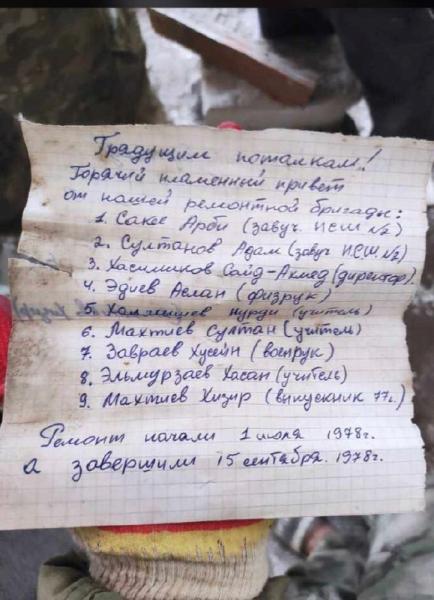 Грядущим потомкам!
Горячий пламенный привет
от нашей ремонтной бригады:
1. Сакс Арби (завуч. ИСШ №2)
2. Султанов Адам (завуч ИСШ №2)
3. Хасимиков Сайд-Ахмед (директор).
4. Эдиев Аслан (физрук)
5. Нурди (учитель)
6. Махтиев Султан (учитель)
7. Завраев Хусейн (военрук)
8. Эльмурзаев Хасан (учитель)
9. Махтиев Хизир (выпускник 77г.)
Ремонт начали 1 июля 1978г.
а завершили 15 сентября 1978г.